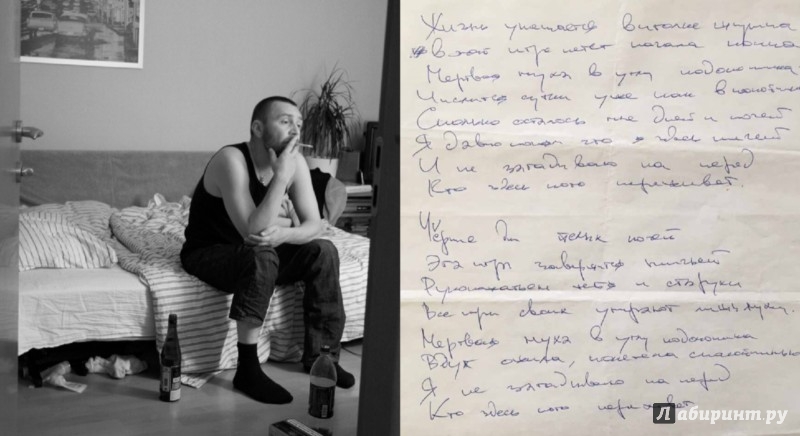 Жизнь умещается в иголке шприца
в этой игре нету начала конца
Мертвая муха в углу подоконника
Числится сутки уже как в
Сколько осталось мне дней и ночей
Я давно понял что я здесь ничей
И не загадываю на перед
Кто здесь кого переживет.
Черные дни ночей
Эта игра завершится ничьей
дети и старухи
Все при своих умирают лишь мухи.
Мертвая муха в углу подоконника
Вдруг ожила, полетела
Я не загадываю на перед
Кто здесь кого переживет
Лабиринт.ру